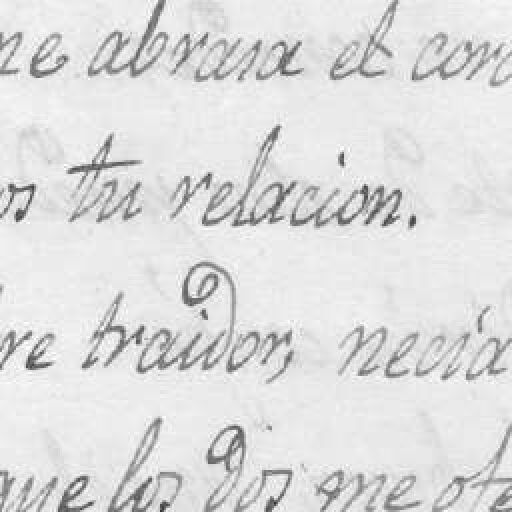 me abrasa el cora
os tu relacion.
re traidor, necia
que los dos me ofe